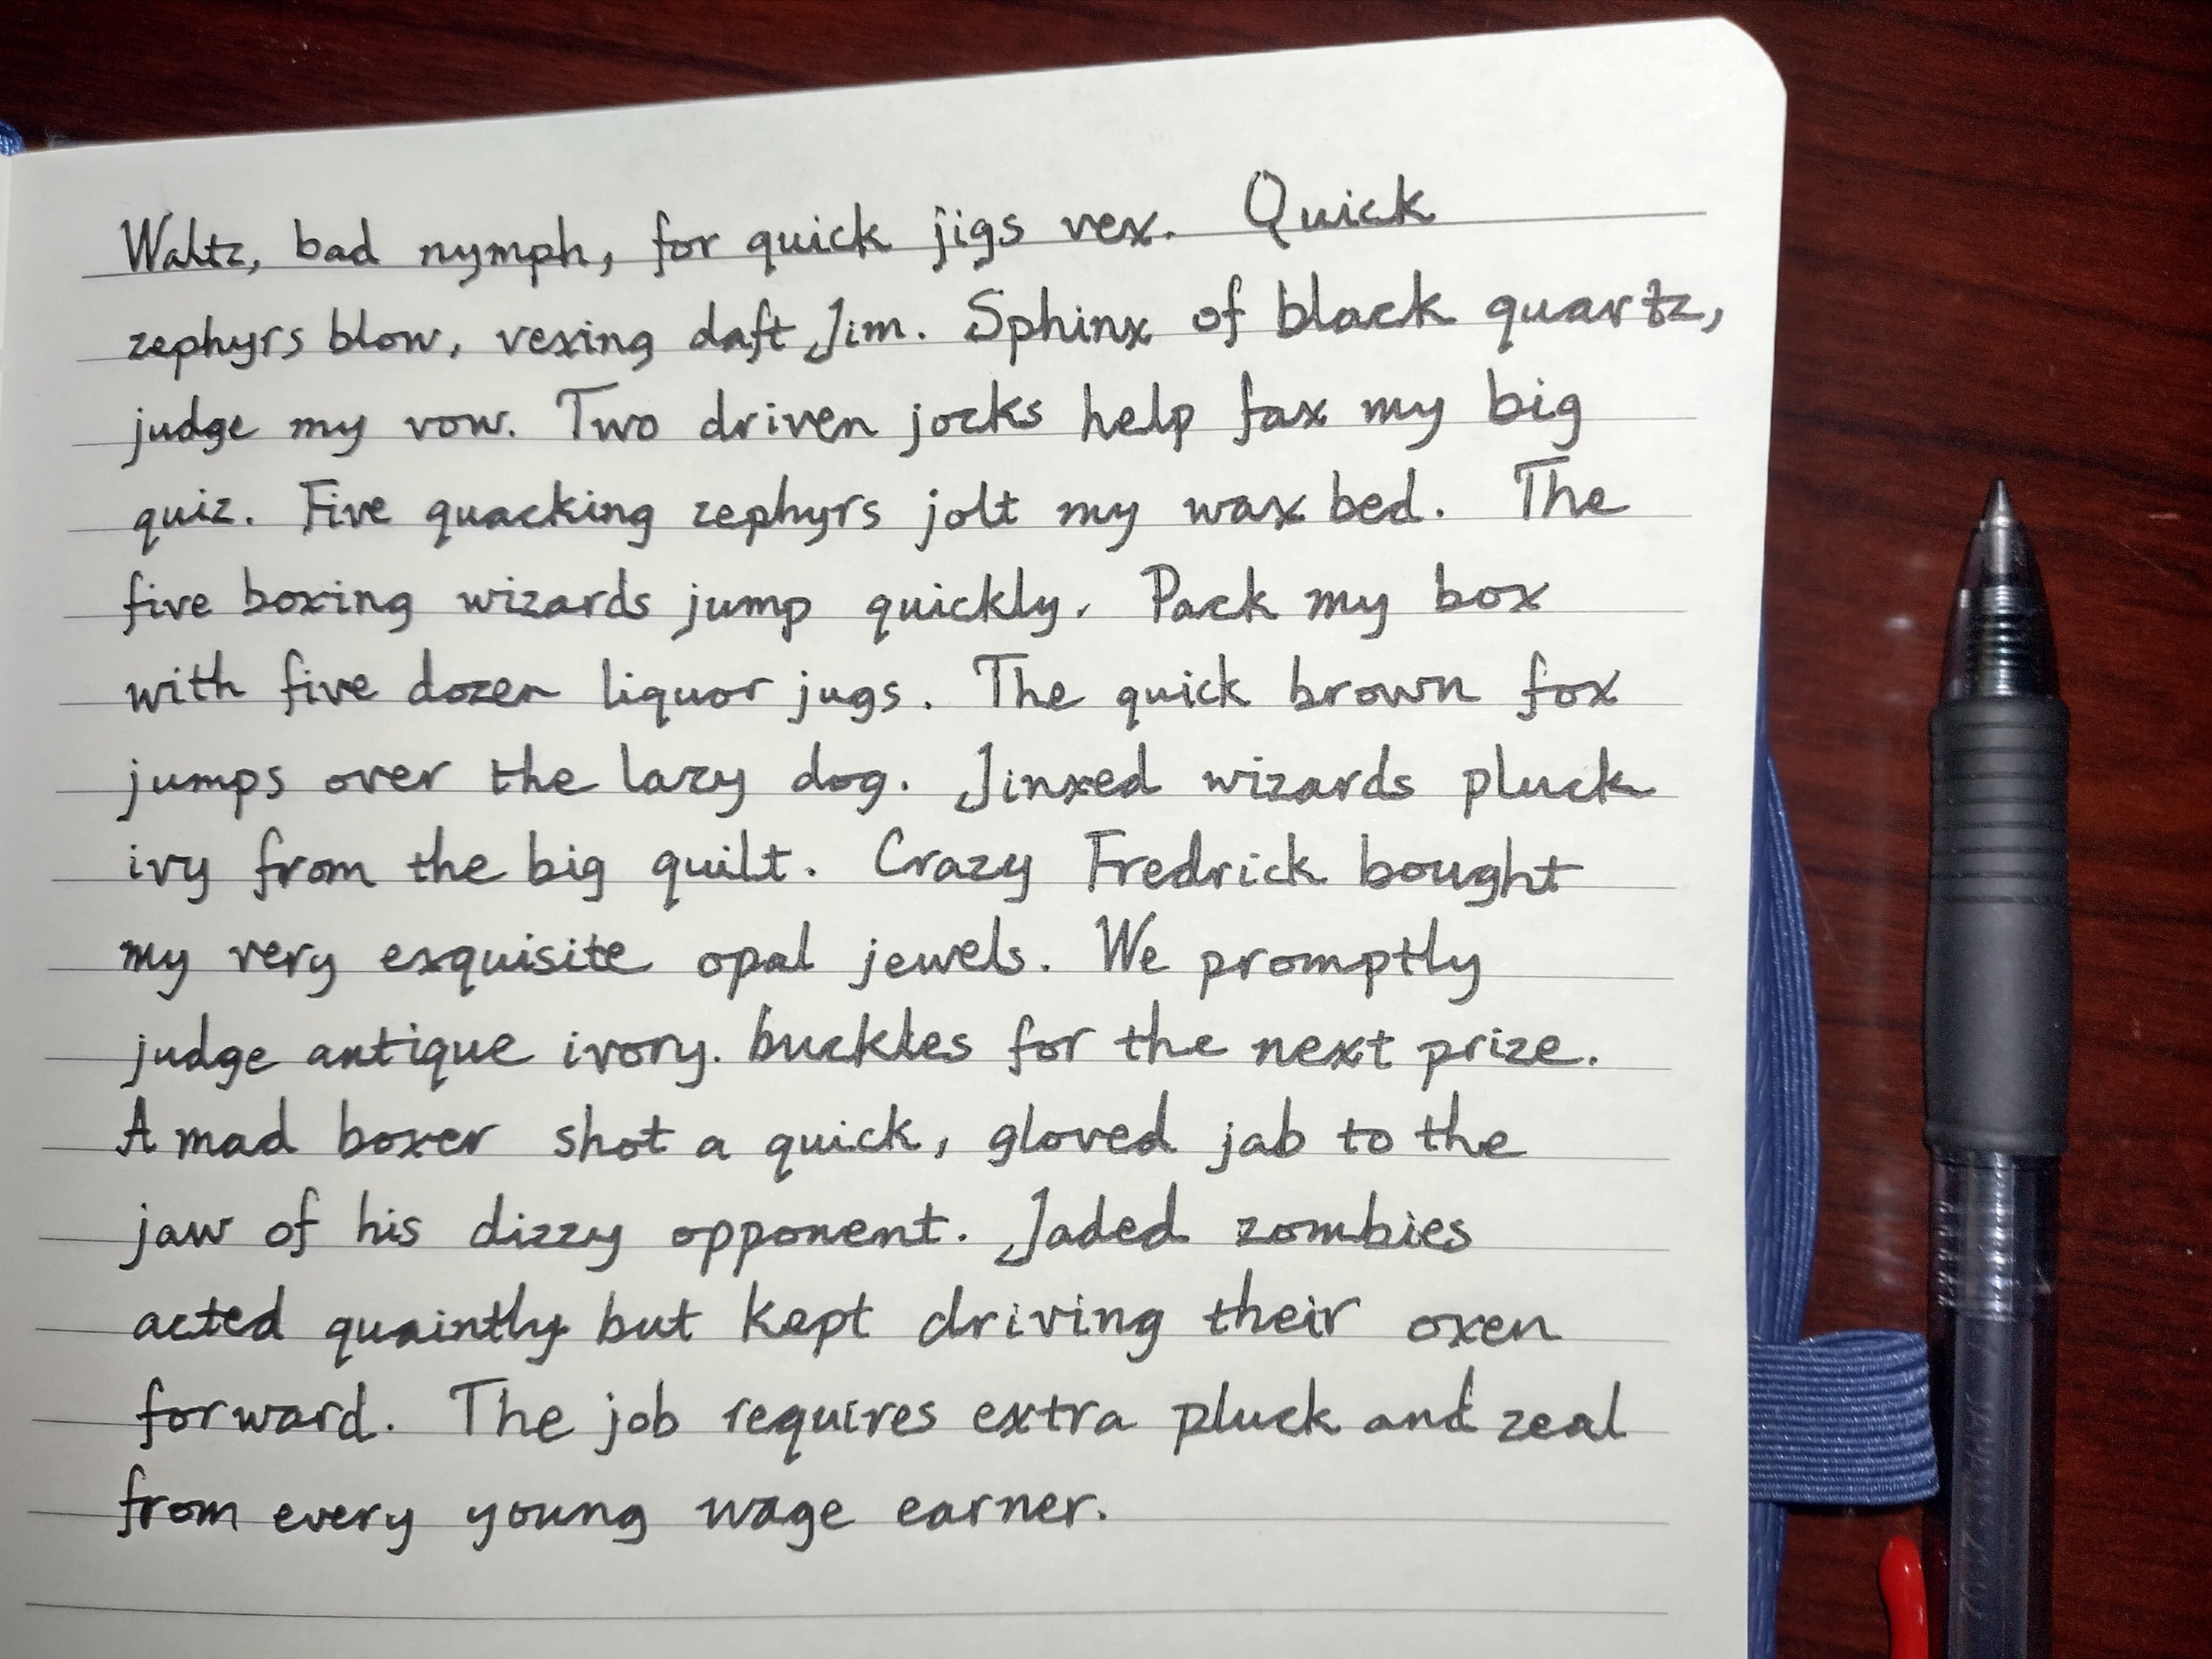 Waltz, bad nymph, for quick jigs vex. Quick
zephyrs blow, vexing daft Jim. Sphinx of black quartz,
judge my vow. Two driven jocks help fax my big
quiz. Five quacking zephyrs jolt my wax bed. The
five boxing wizards jump quickly. Pack my box
with five dozen liquor jugs. The quick brown fox
jumps over the lazy dog. Jinxed wizards pluck
ivy from the big quilt. Crazy Fredrick bought
my very exquisite opal jewels. We promptly
judge antique ivory. buckles for the next prize.
A mad boxer shot a quick, gloved jab to the
jaw of his dizzy opponent. Jaded zombies
acted quaintly but kept driving their oxen
forward. The job requires extra pluck and zeal
from every young wage earner.